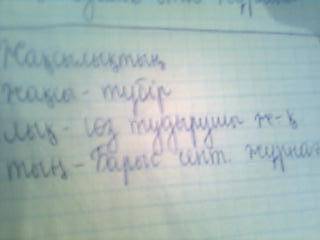 Жақсылықтың
жақсы - түбір
лық - сөз тудырушы ж-қ
тың - Барыс септ. жұрнағ